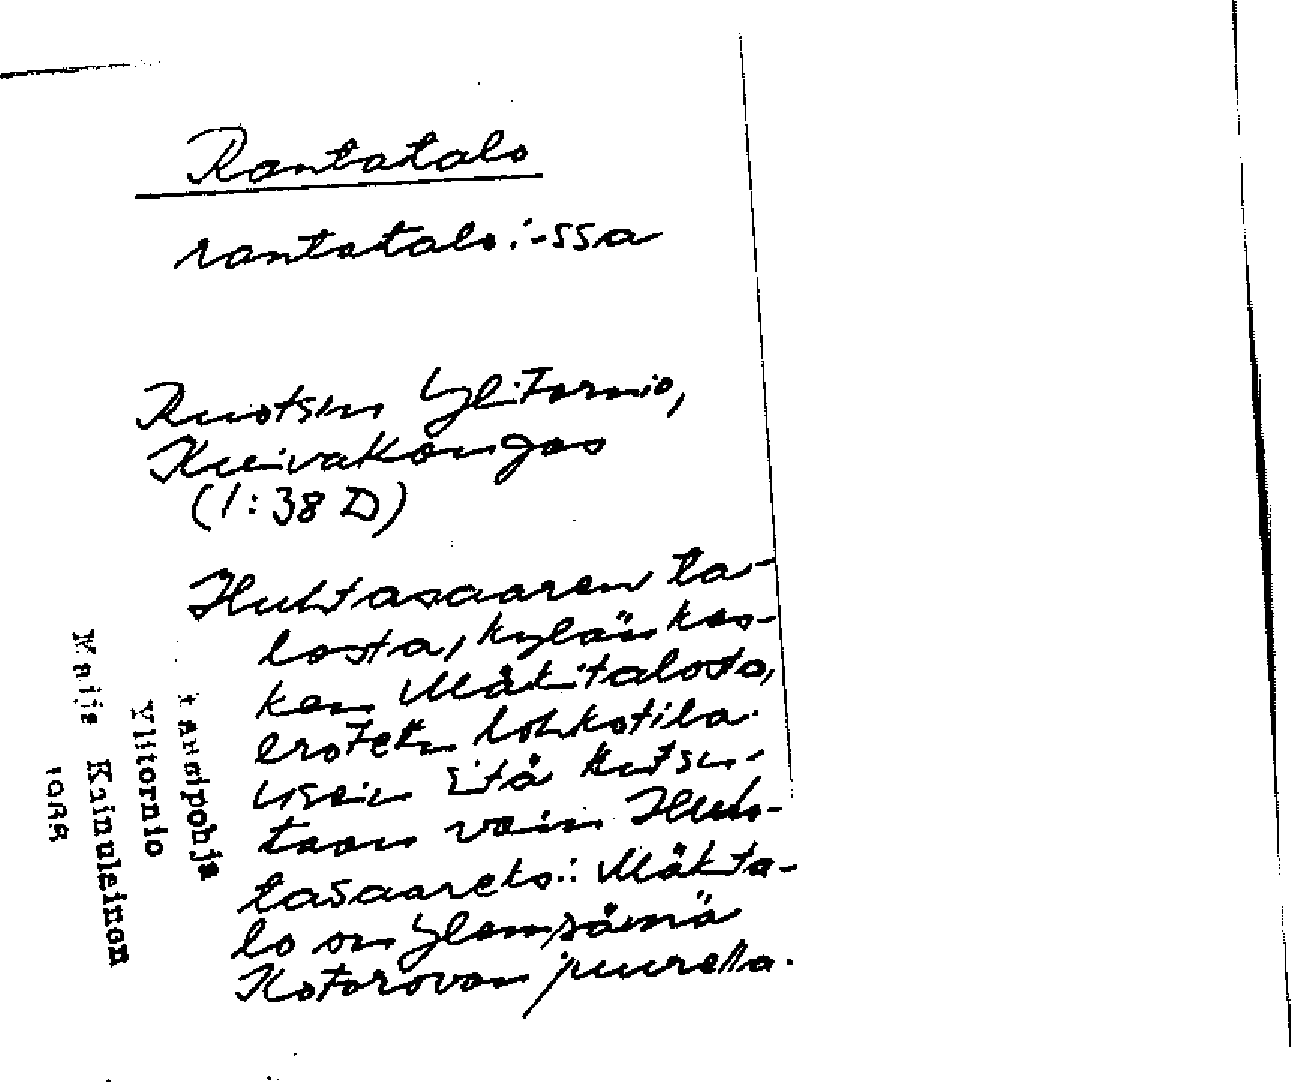 Rantatalo
rantatalo: -ssa
Ruotsin Ylitornio,
Kuivakangas
(1:38 D)
Huhtasaaren ta-
losta, kylän kes-
ken Mäkitalosta,
erotettu lohkotila.
Usein sitä kutsu-
taan vain Huh-
tasaareks: Mäkita-
lo on ylempänä
Kotarovan juurella.
Länsipohja
Ylitornio
Maija Kainulainen
1988